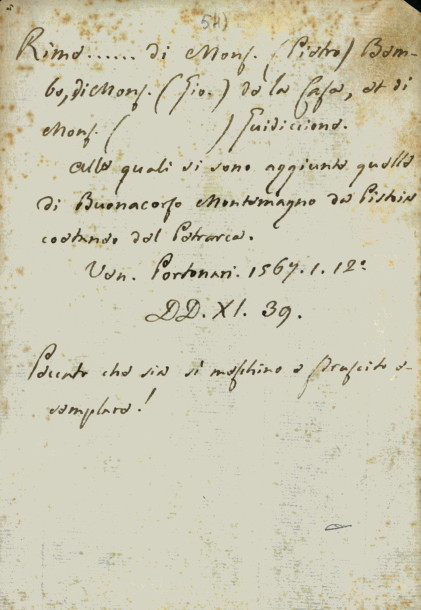 54)
Rime...... di Mons. (Pietro) Bem-
bo, di Mons. (Gio.) de la Casa, et di
Mons. ( ) Guidiccione.
Alle quali si sono aggiunte quelle
di Buonacorso Montemagno da Pistoia
coetaneo del Petrarca.
Ven. Portonari. 1567. 1. 12º
DD. XI. 39.
Peccato che sia sì meschino e e-
semplare!